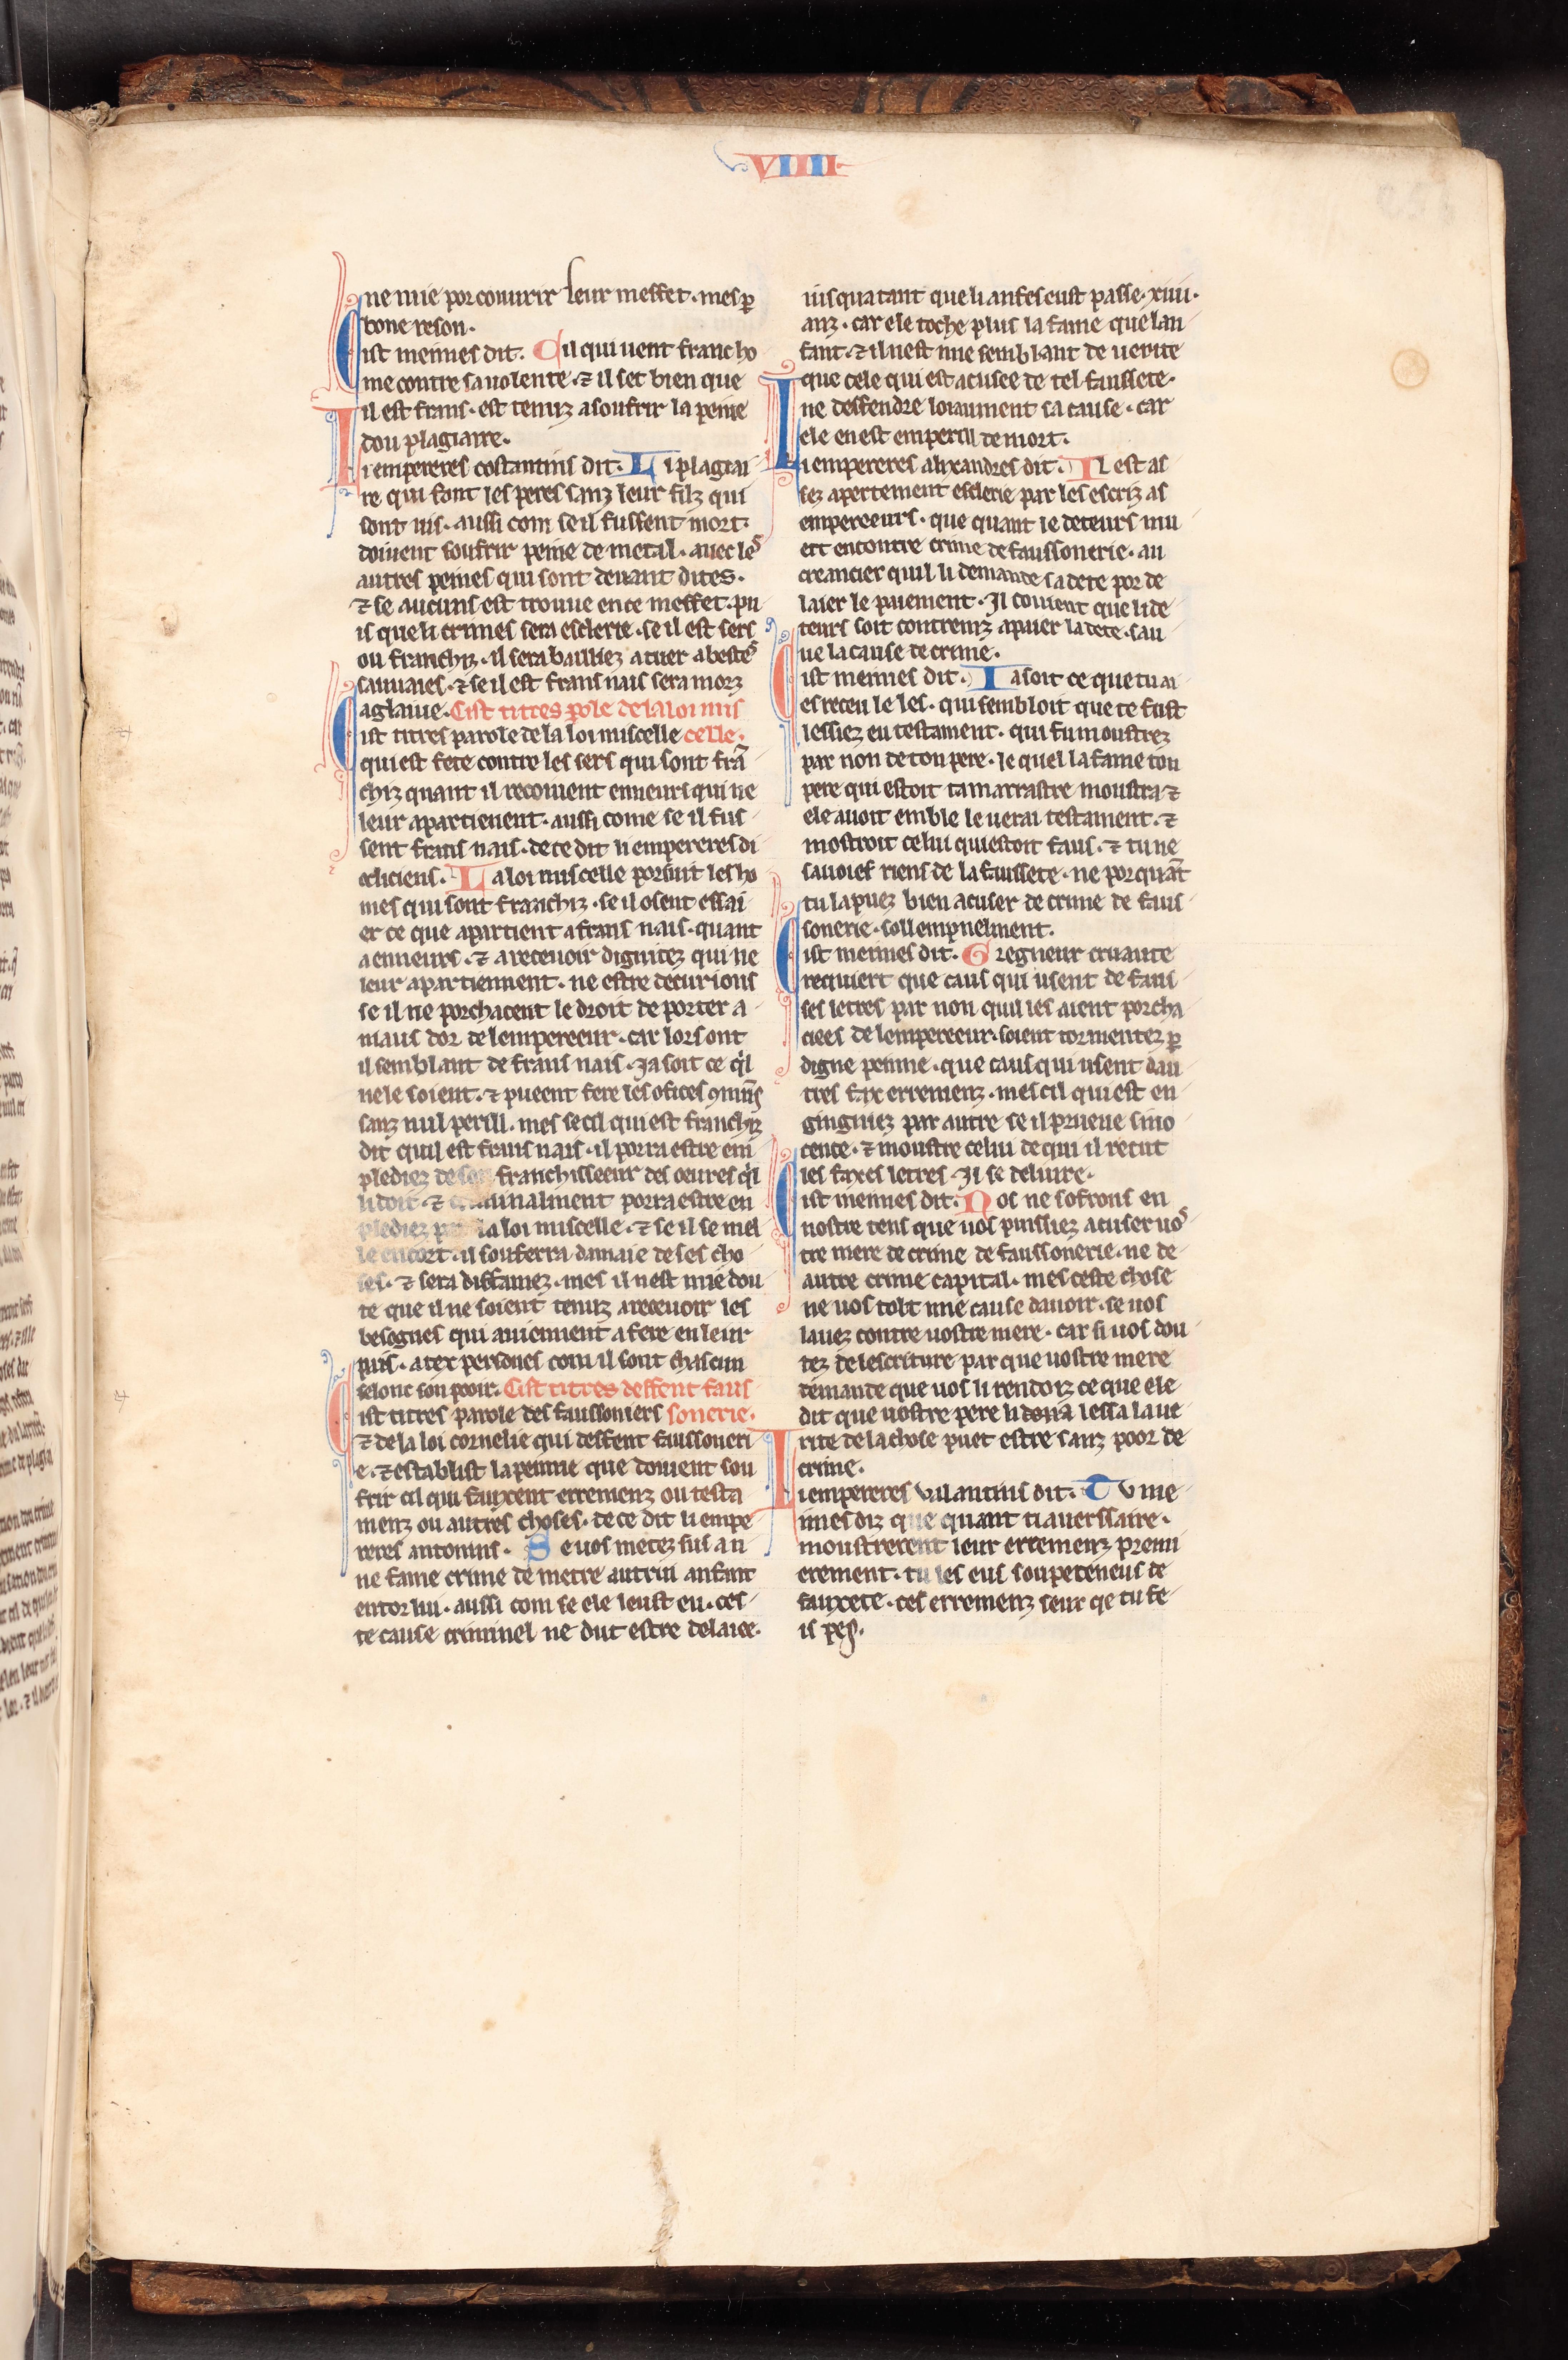 VIIII
ne mie por couurir leur meffet. mes ꝑ
bone reson.
Cist meimes dit. Cil qui uent franc ho
me contre sa uolente. ⁊ il set bien que
il est frans. est tenuz a soufrir la peine
dou plagiaire.
Li empereres costantins dit. Li plagiai
re qui font les peres sanz leur filz qui
sont uis. aussi com se il fussent mort.
doiuent soufrir peine de metal. auec les
autres peines qui sont deuant dites.
⁊ se aucuns est trouue en ce meffet. pu
is que li crimes sera esclerie. se il est sers
ou franchiz. il sera bailliez a tuer a bestes
sauuaies. ⁊ se il est frans nais sera morz
a glaiue. Cist titres ꝑole de la loi mis
Cist titres parole de la loi miscelle celle.
qui est fete contre les sers qui sont frā
chiz quant il recoiuent enneurs qui ne
leur apartienent. aussi come se il fus
sent frans nais. de ce dit li empereres di
ocliciens. La loi miscelle porsuit les ho
mes qui sont franchiz. se il osent essai
er ce que apartient a frans nais. quant
a enneurs. ⁊ a receuoir dignitez qui ne
leur apartiennent. ne estre decurions
se il ne porchacent le droit de porter a
niaus dor de lempereeur. car lors ont
il semblant de frans nais. Ja soit ce qͥl
ne le soient. ⁊ pueent fere les ofices ꝯmūs
sanz nul perill. mes se cil qui est franchiz
dit quil est frans nais. il porra estre em
plediez de son franchisseeur des oeures qͥl
li doit. ⁊ criminalment porra estre en
plediez par la loi miscelle. ⁊ se il se mel
le en cort. il souferra damaie de ses cho
ses. ⁊ sera diffamez. mes il nest mie dou
te que il ne soient tenuz a receuoir les
besognes qui auienent a fere en leur
puis. a tex persones com il sont chascun
selonc son pooir. Cist titres deffent faus
Cist titres parole des faussoniers sonerie.
⁊ de la loi cornelie qui deffent faussoneri
e. ⁊ establist la peinne que doiuent sou
frir cil qui fauxent erremenz ou testa
menz ou autres choses. de ce dit li empe
reres antonins. Se uos metez sus a u
ne fame crime de metre autrui anfant
entor lui. aussi com se ele leust eu. ces
te cause criminel ne dut estre delaiee.
iusqua tant que li anfes eust passe. xiiii.
anz. car ele toche plus la fame que lan
fant. ⁊ il nest mie semblant de uerite
que cele qui est acusee de tel faussete.
ne deffendre loiaument sa cause. car
ele en est em perill de mort.
Li empereres alixandres dit. Il est as
sez apertement esclerie par les escriz as
empereeurs. que quant le deteurs mu
ert encontre crime de faussonerie. au
creancier quil li demande sa dete por de
laier le paiement. Il couient que li de
teurs soit contreniz a paier la dete. sau
ue la cause de crime.
Cist meimes dit. Ia soit ce que tu ai
es receu le les. qui sembloit que te fust
lessiez eu testament. qui fu moustrez
par non de ton pere. le quel la fame ton
pere qui estoit ta marrastre moustra ⁊
ele auoit emble le uerai testament. ⁊
mostroit celui qui estoit faus. ⁊ tu ne
sauoies riens de la faussete. ne porquāt
tu la puez bien acuser de crime de faus
sonerie. sollempnelment.
Cist meimes dit. Gregneur cruaute
requiert que caus qui usent de faus
ses letres par non quil les aient porcha
ciees de lempereeur. soient tormentez ꝑ
digne peinne. que caus qui usent dau
tres fax erremenz. mes cil qui est en
gingniez par autre se il prueue sino
cence. ⁊ moustre celui de qui il recut
les faxes letres. Il se deliure.
Cist meimes dit. Nos ne sofrons en
nostre tens que uos puissiez acuser uos
tre mere de crime de faussonerie. ne de
autre crime capital. mes ceste chose
ne uos tolt mie cause dauoir. se uos
lauez contre uostre mere. car si uos dou
tez de lescriture par que uostre mere
demande que uos li rendoiz ce que ele
dit que uostre pere li dona lessa la ue
rite de la chose puet estre sanz poor de
crime.
Li empereres valantins dit. Tu me
imes diz que quant ti auerssaire.
moustrerent leur erremenz premi
erement. tu les eus soupeceneus de
fauxete. ces erremenz seur qe tu fe
is pes.